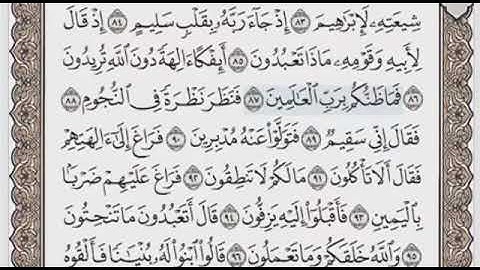 شِيعَتِهِۦ لَإِبْرَٰهِيمَ ٨٣ إِذْ جَآءَ رَبَّهُۥ بِقَلْبٍ سَلِيمٍ ٨٤ إِذْ قَالَ
لِأَبِيهِ وَقَوْمِهِۦ مَاذَا تَعْبُدُونَ ٨٥ أَئِفْكًا ءَالِهَةً دُونَ ٱللَّهِ تُرِيدُونَ
٨٦ فَمَا ظَنُّكُم بِرَبِّ ٱلْعَٰلَمِينَ ٨٧ فَنَظَرَ نَظْرَةً فِى ٱلنُّجُومِ ٨٨
فَقَالَ إِنِّى سَقِيمٌ ٨٩ فَتَوَلَّوْا۟ عَنْهُ مُدْبِرِينَ ٩٠ فَرَاغَ إِلَىٰٓ ءَالِهَتِهِمْ
فَقَالَ أَلَا تَأْكُلُونَ ٩١ مَا لَكُمْ لَا تَنطِقُونَ ٩٢ فَرَاغَ عَلَيْهِمْ ضَرْبًۢا
بِٱلْيَمِينِ ٩٣ فَأَقْبَلُوٓا۟ إِلَيْهِ يَزِفُّونَ ٩٤ قَالَ أَتَعْبُدُونَ مَا تَنْحِتُونَ
٩٥ وَٱللَّهُ خَلَقَكُمْ وَمَا تَعْمَلُونَ ٩٦ قَالُوا۟ ٱبْنُوا۟ لَهُۥ بُنْيَٰنًا فَأَلْقُوهُ